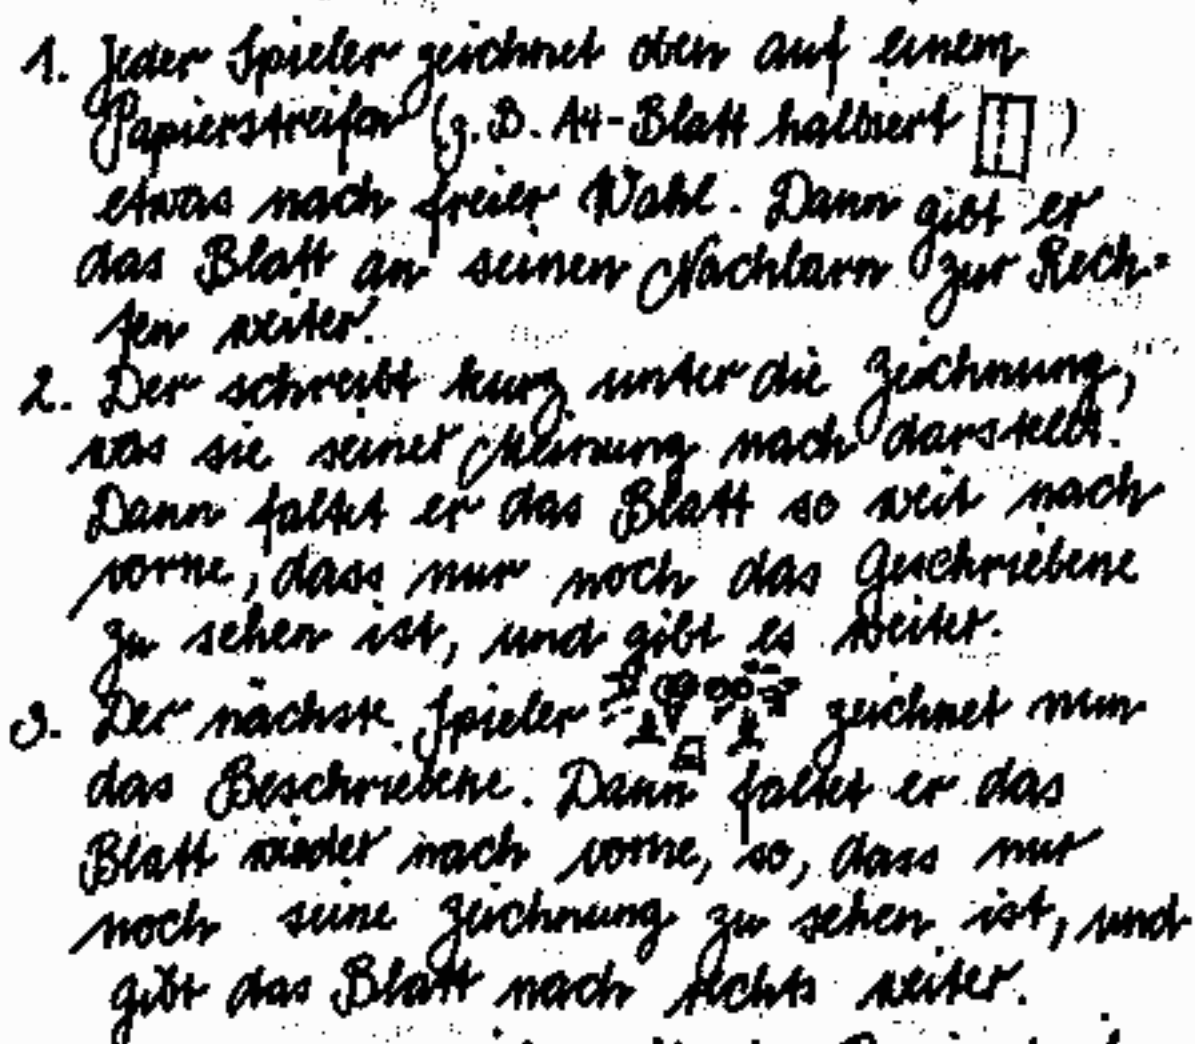 1. Jeder Spieler zeichnet oben auf einem
Papierstreifen (z. B. A4-Blatt halbiert )
etwas nach freier Wahl. Dann gibt er
das Blatt an seinen Nachbarn zur Rech-
ten weiter.
2. Der schreibt kurz unter die Zeichnung,
was sie seiner Meinung nach darstellt.
Dann faltet er das Blatt so weit nach
vorne, dass nur noch das Geschriebene
zu sehen ist, und gibt es weiter.
3. Der nächste Spieler zeichnet nun
das Beschriebene. Dann faltet er das
Blatt wieder nach vorne, so, dass nur
noch seine Zeichnung zu sehen ist, und
gibt das Blatt nach rechts weiter.